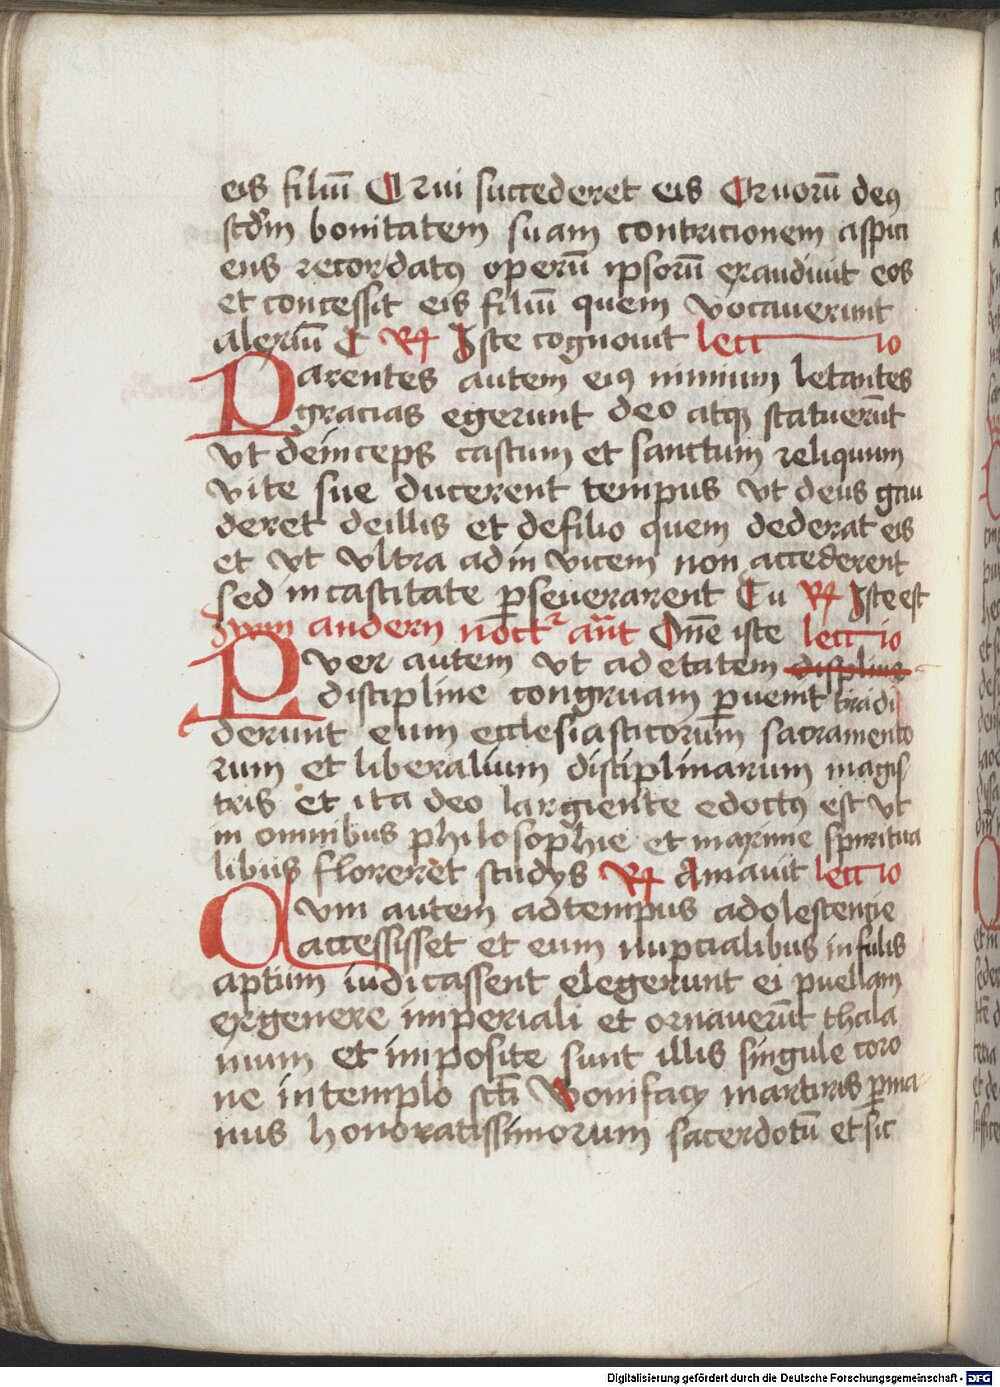 eis filiū Qui succederet eis Quorū deꝰ
scdm̄ bonitatem suam contricionem aspici
ens recordatꝰ operū ipsorū exaudiuit eos
et concessit eis filiū quem vocauerunt
alexiū C R Iste cognouit lectio
Parentes autem eiꝰ nimium letantes
gracias egerunt deo atqꝫ statuerūt
vt deinceps castum et sanctum reliquum
vite sue ducerent tempus vt deus gau
deret deillis et defilio quem dederat eis
et vt vltra adin vicem non accederent
sed in castitate p̱seuerarent Tu R Iste est
Zwm andern noct² an̄t One iste lectio
Pver autem vt ad etatem displine
discipline congruam p̱uenit tradi
derunt eum ecclesiasticorum sacramento
rum et liberalium disciplinarum magis
tris et ita deo largiente edoctꝰ est vt
in omnibus philosophie et maxime spiritua
libus floreret studys R Amauit lectio
Qvm autem adtempus adolescencie
accessisset et eum nupcialibus infulis
aptum iudicassent elegerunt ei puellam
exgenere imperiali et ornauerūt thala
mum et imposite sunt illis singule coro
ne in templo sct̄i Bonifacy martiris p̱ma
nus honoratissimorum sacerdotū et sic
Digitalisierung gefördert durch die Deutsche Forschungsgemeinschaft - DFG